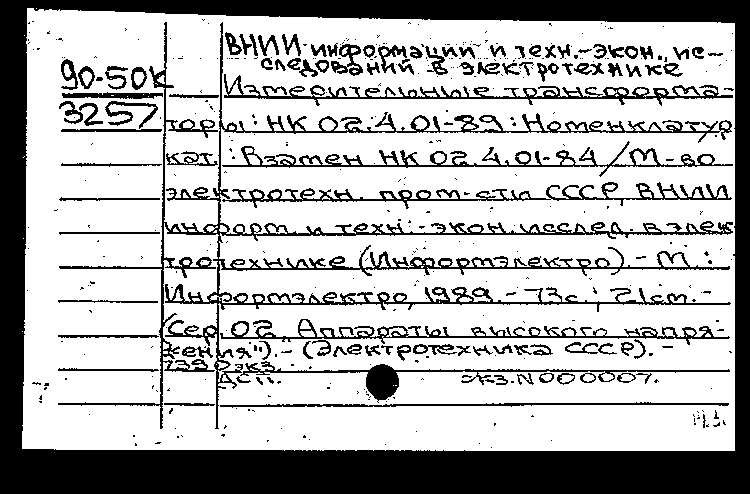 ВНИИ информации и техн.-экон. ис-
следований в электротехнике
90-50К
3257
Измерительные трансформа-
торы: НК 02.4.01-89: Номенклатур.
кат. : Взамен НК 02.4.01-84 / М-во
электротехн. пром-сти СССР, ВНИИ
информ. и техн.-экон. исслед. в элек
тротехнике (Информэлектро). - М. :
Информэлектро, 1989. - 73с.; 21см. -
(Сер. 02 „Аппараты высокого напря-
жения"). - (Электротехника СССР). -
7390 экз.
ДСП. экз. N 000007.